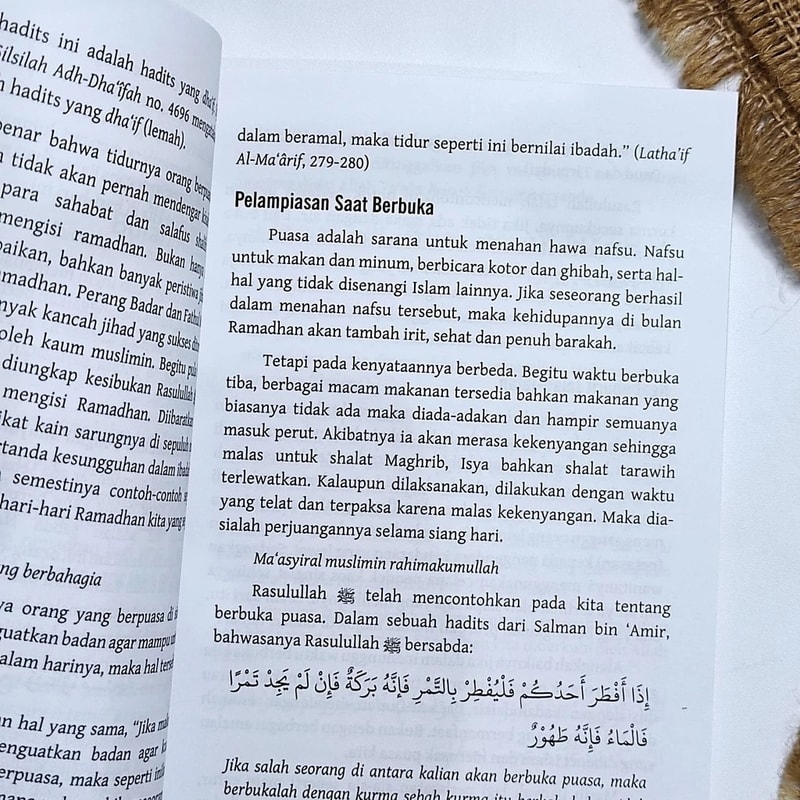 hadits ini adalah hadits yang dha'if,
Silsilah Adh-Dha'îfah no. 4696
hadits yang dha'if (lemah).
benar bahwa tidurnya orang
tidak akan pernah mendengar
para sahabat dan salafus
mengisi ramadhan. Bukan
bahkan banyak peristiwa
Perang Badar dan
kancah jihad yang sukses
oleh kaum muslimin. Begitu
diungkap kesibukan Rasulullah
mengisi Ramadhan.
kain sarungnya di sepuluh
kesungguhan dalam
semestinya contoh-contoh
hari-hari Ramadhan kita yang
berbahagia
orang yang berpuasa di
badan agar mampu
harinya, maka hal
hal yang sama, "Jika
menguatkan badan agar
maka seperti
dalam beramal, maka tidur seperti ini bernilai ibadah." (Latha'if
Al-Ma'ârif, 279-280)
Pelampiasan Saat Berbuka
Puasa adalah sarana untuk menahan hawa nafsu. Nafsu
untuk makan dan minum, berbicara kotor dan ghibah, serta hal-
hal yang tidak disenangi Islam lainnya. Jika seseorang berhasil
dalam menahan nafsu tersebut, maka kehidupannya di bulan
Ramadhan akan tambah irit, sehat dan penuh barakah.
Tetapi pada kenyataannya berbeda. Begitu waktu berbuka
tiba, berbagai macam makanan tersedia bahkan makanan yang
biasanya tidak ada maka diada-adakan dan hampir semuanya
masuk perut. Akibatnya ia akan merasa kekenyangan sehingga
malas untuk shalat Maghrib, Isya bahkan shalat tarawih
terlewatkan. Kalaupun dilaksanakan, dilakukan dengan waktu
yang telat dan terpaksa karena malas kekenyangan. Maka dia-
sialah perjuangannya selama siang hari.
Ma'asyiral muslimin rahimakumullah
Rasulullah ﷺ telah mencontohkan pada kita tentang
berbuka puasa. Dalam sebuah hadits dari Salman bin 'Amir,
bahwasanya Rasulullah ﷺ bersabda:
إِذَا أَفْطَرَ أَحَدُكُمْ فَلْيُفْطِرْ بِالتَّمْرِ فَإِنَّهُ بَرَكَةٌ فَإِنْ لَمْ يَجِدْ تَمْرًا
فَالْمَاءُ فَإِنَّهُ طَهُورٌ
Jika salah seorang di antara kalian akan berbuka puasa, maka
berbukalah dengan kurma sebab kurma itu